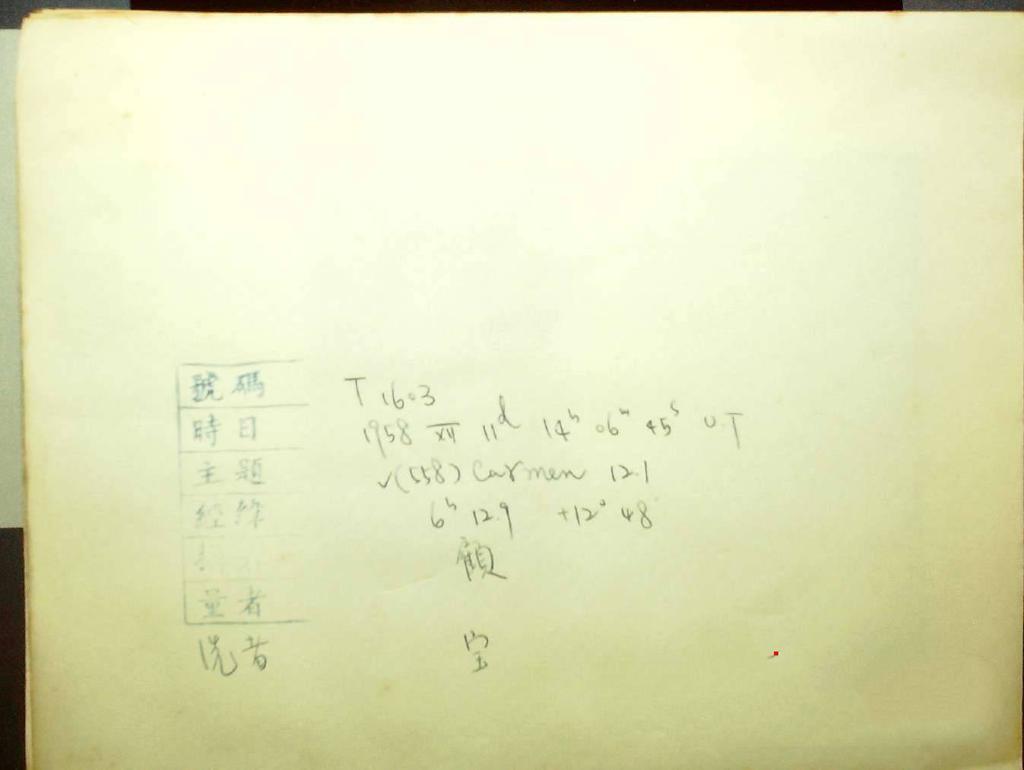 號碼 T 1603
時日 1958 XII 11d 14h 06m 45s U.T
主題 √(558) Carmen 12.1
經緯 6h 12.9 +12° 48
顧
量者
洗者 宝